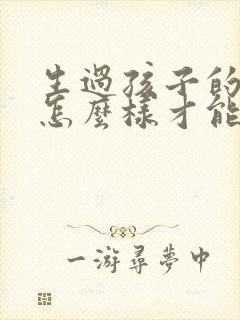 生過孩子的
怎麼樣才能
一游尋夢中